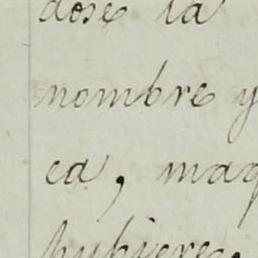 dose la
nombre y
ca, maq
hubiere.